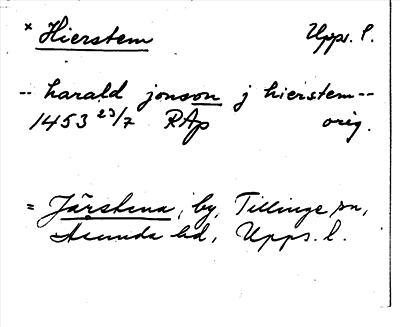 × Hierstem Upps. l.
-- harald jonson j hierstem --
1453 23/7 RAp orig.
= Järstena, by, Tillinge sn,
Åsunda hd, Upps. l.